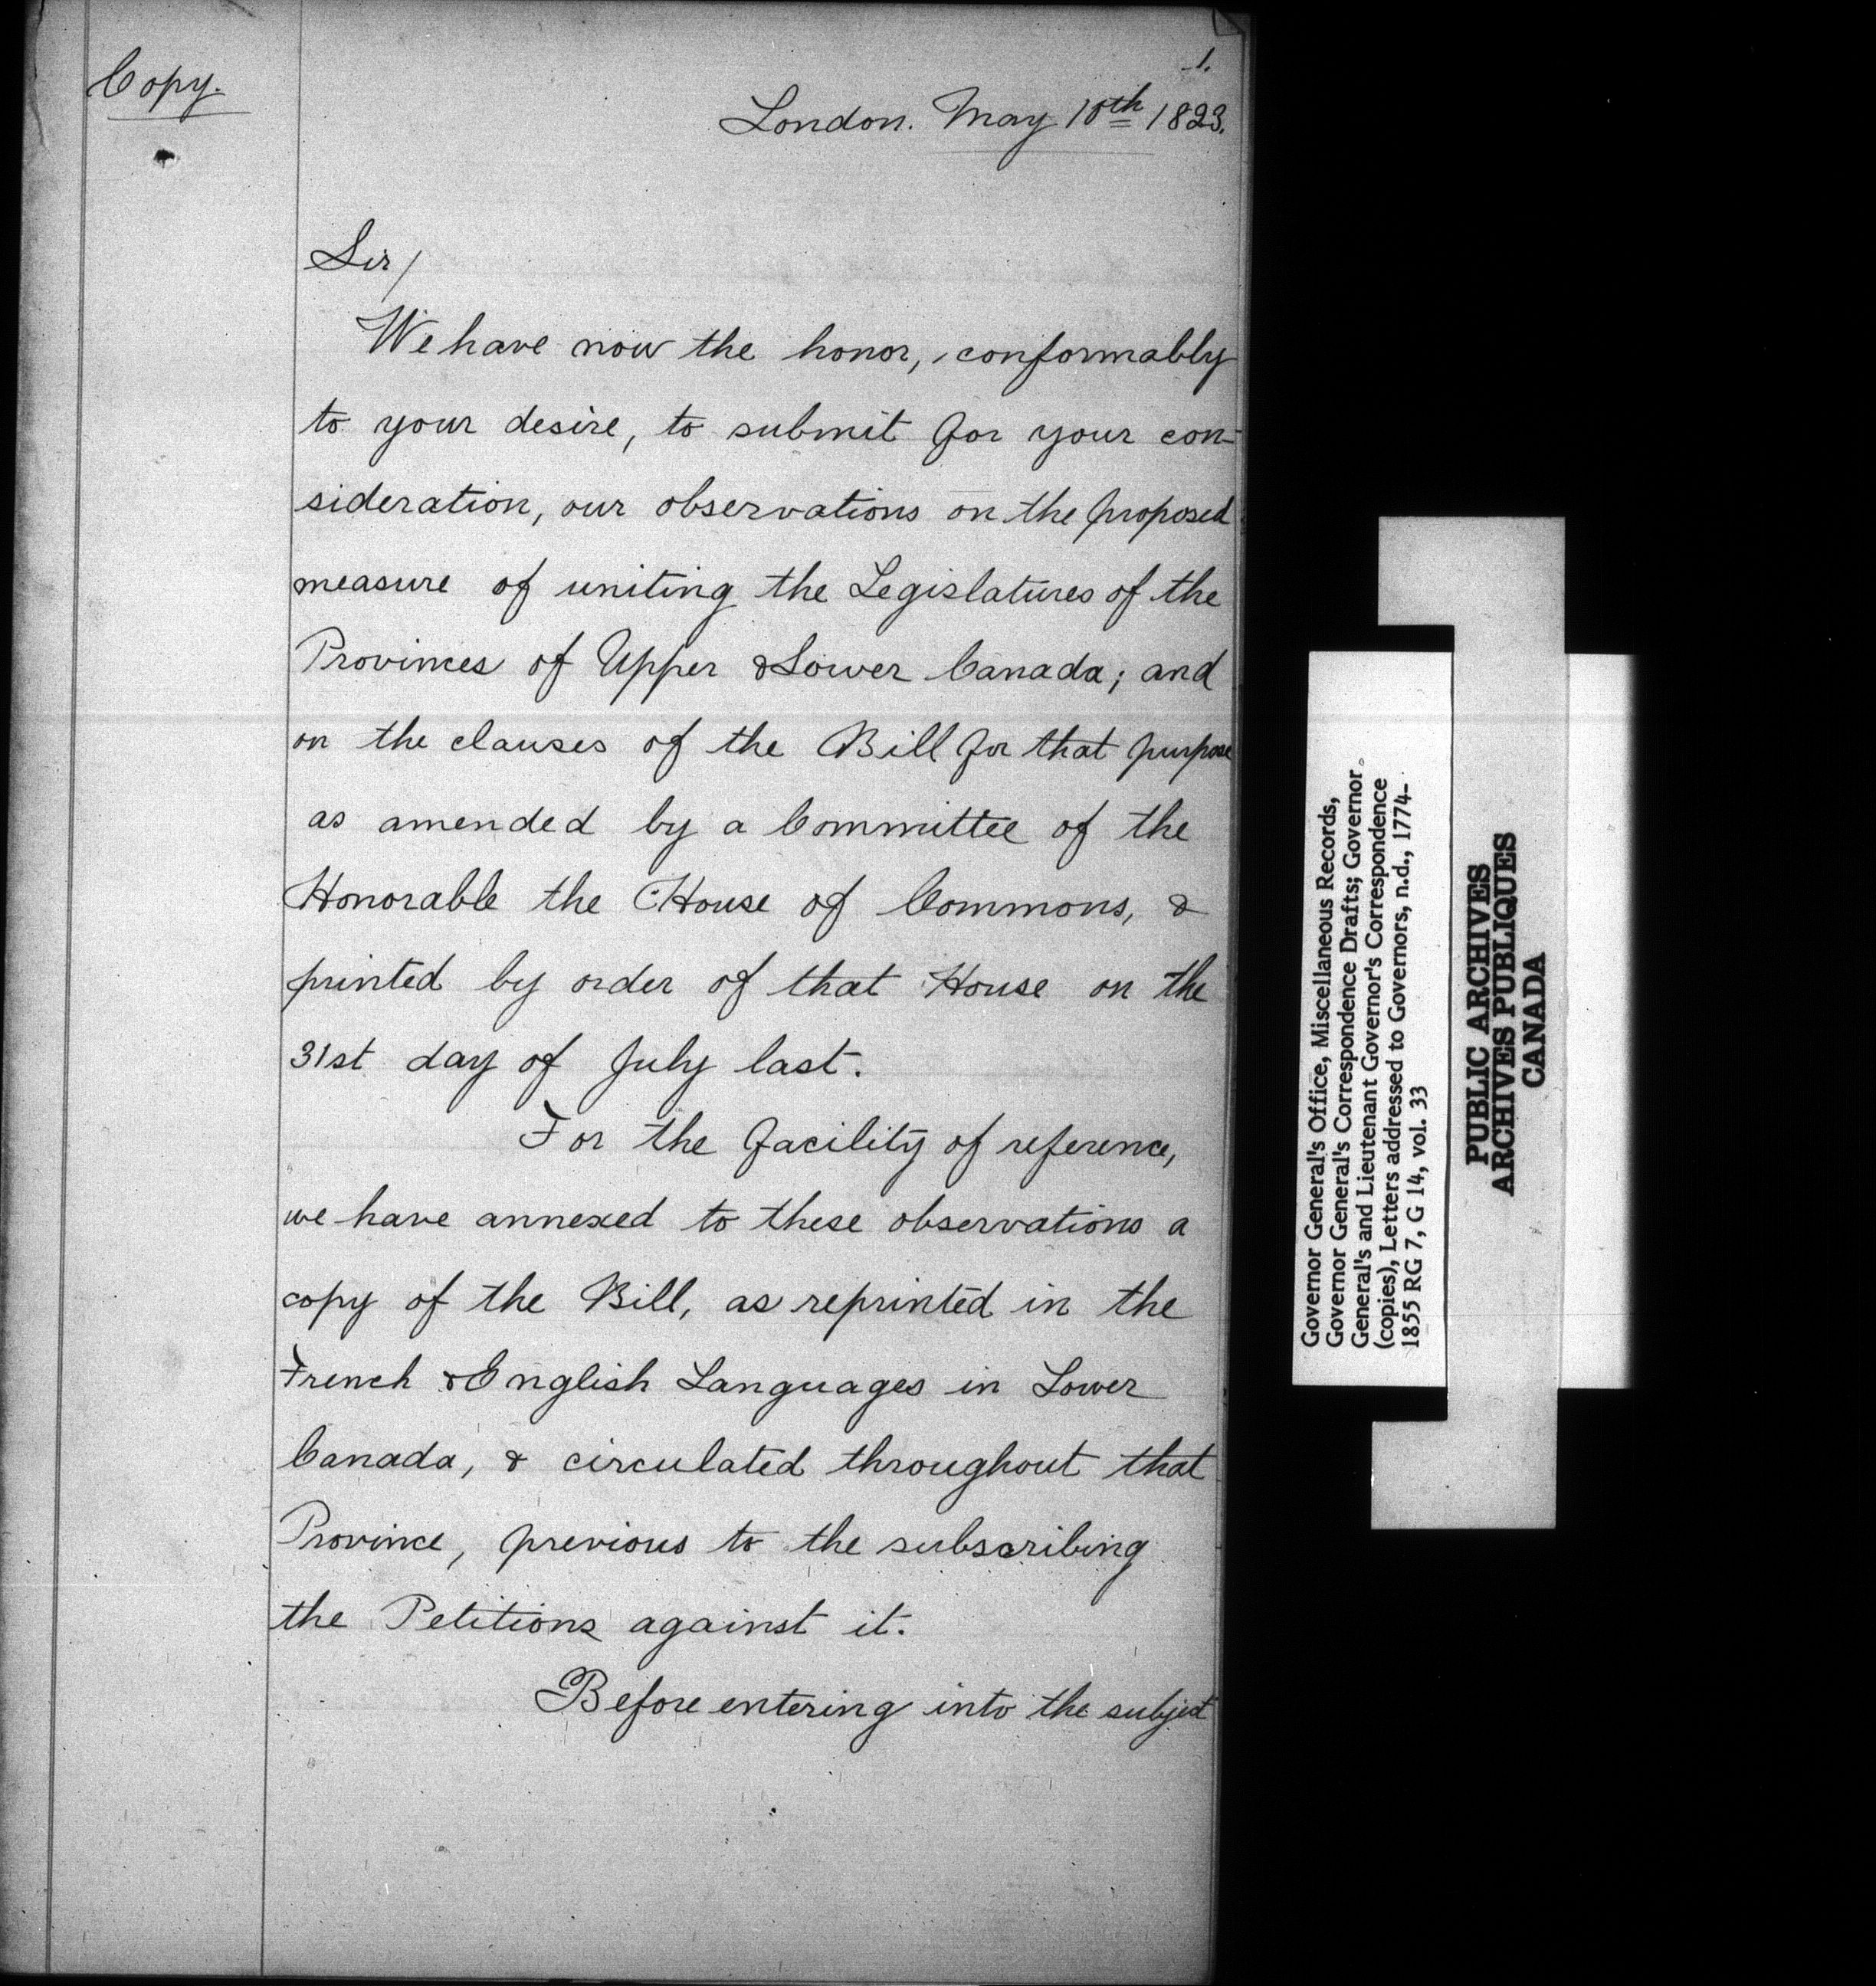 Copy.
1.
London. May 10th 1823.
Sir/
We have now the honor, conformably
to your desire, to submit for your con-
sideration, our observations on the proposed
measure of uniting the Legislatures of the
Provinces of Upper & Lower Canada; and
on the clauses of the Bill for that purpose
as amended by a Committee of the
Honorable the House of Commons, &
printed by order of that House on the
31st day of July last.
For the facility of reference,
we have annexed to these observations a
copy of the Bill, as reprinted in the
French & English Languages in Lower
Canada, & circulated throughout that
Province, previous to the subscribing
the Petitions against it.
Before entering into the subject
Governor General's Office, Miscellaneous Records,
Governor General's Correspondence Drafts; Governor
General's and Lieutenant Governor's Correspondence
(copies), Letters addressed to Governors, n.d., 1774-
1855 RG 7, G 14, vol. 33
PUBLIC ARCHIVES
ARCHIVES PUBLIQUES
CANADA